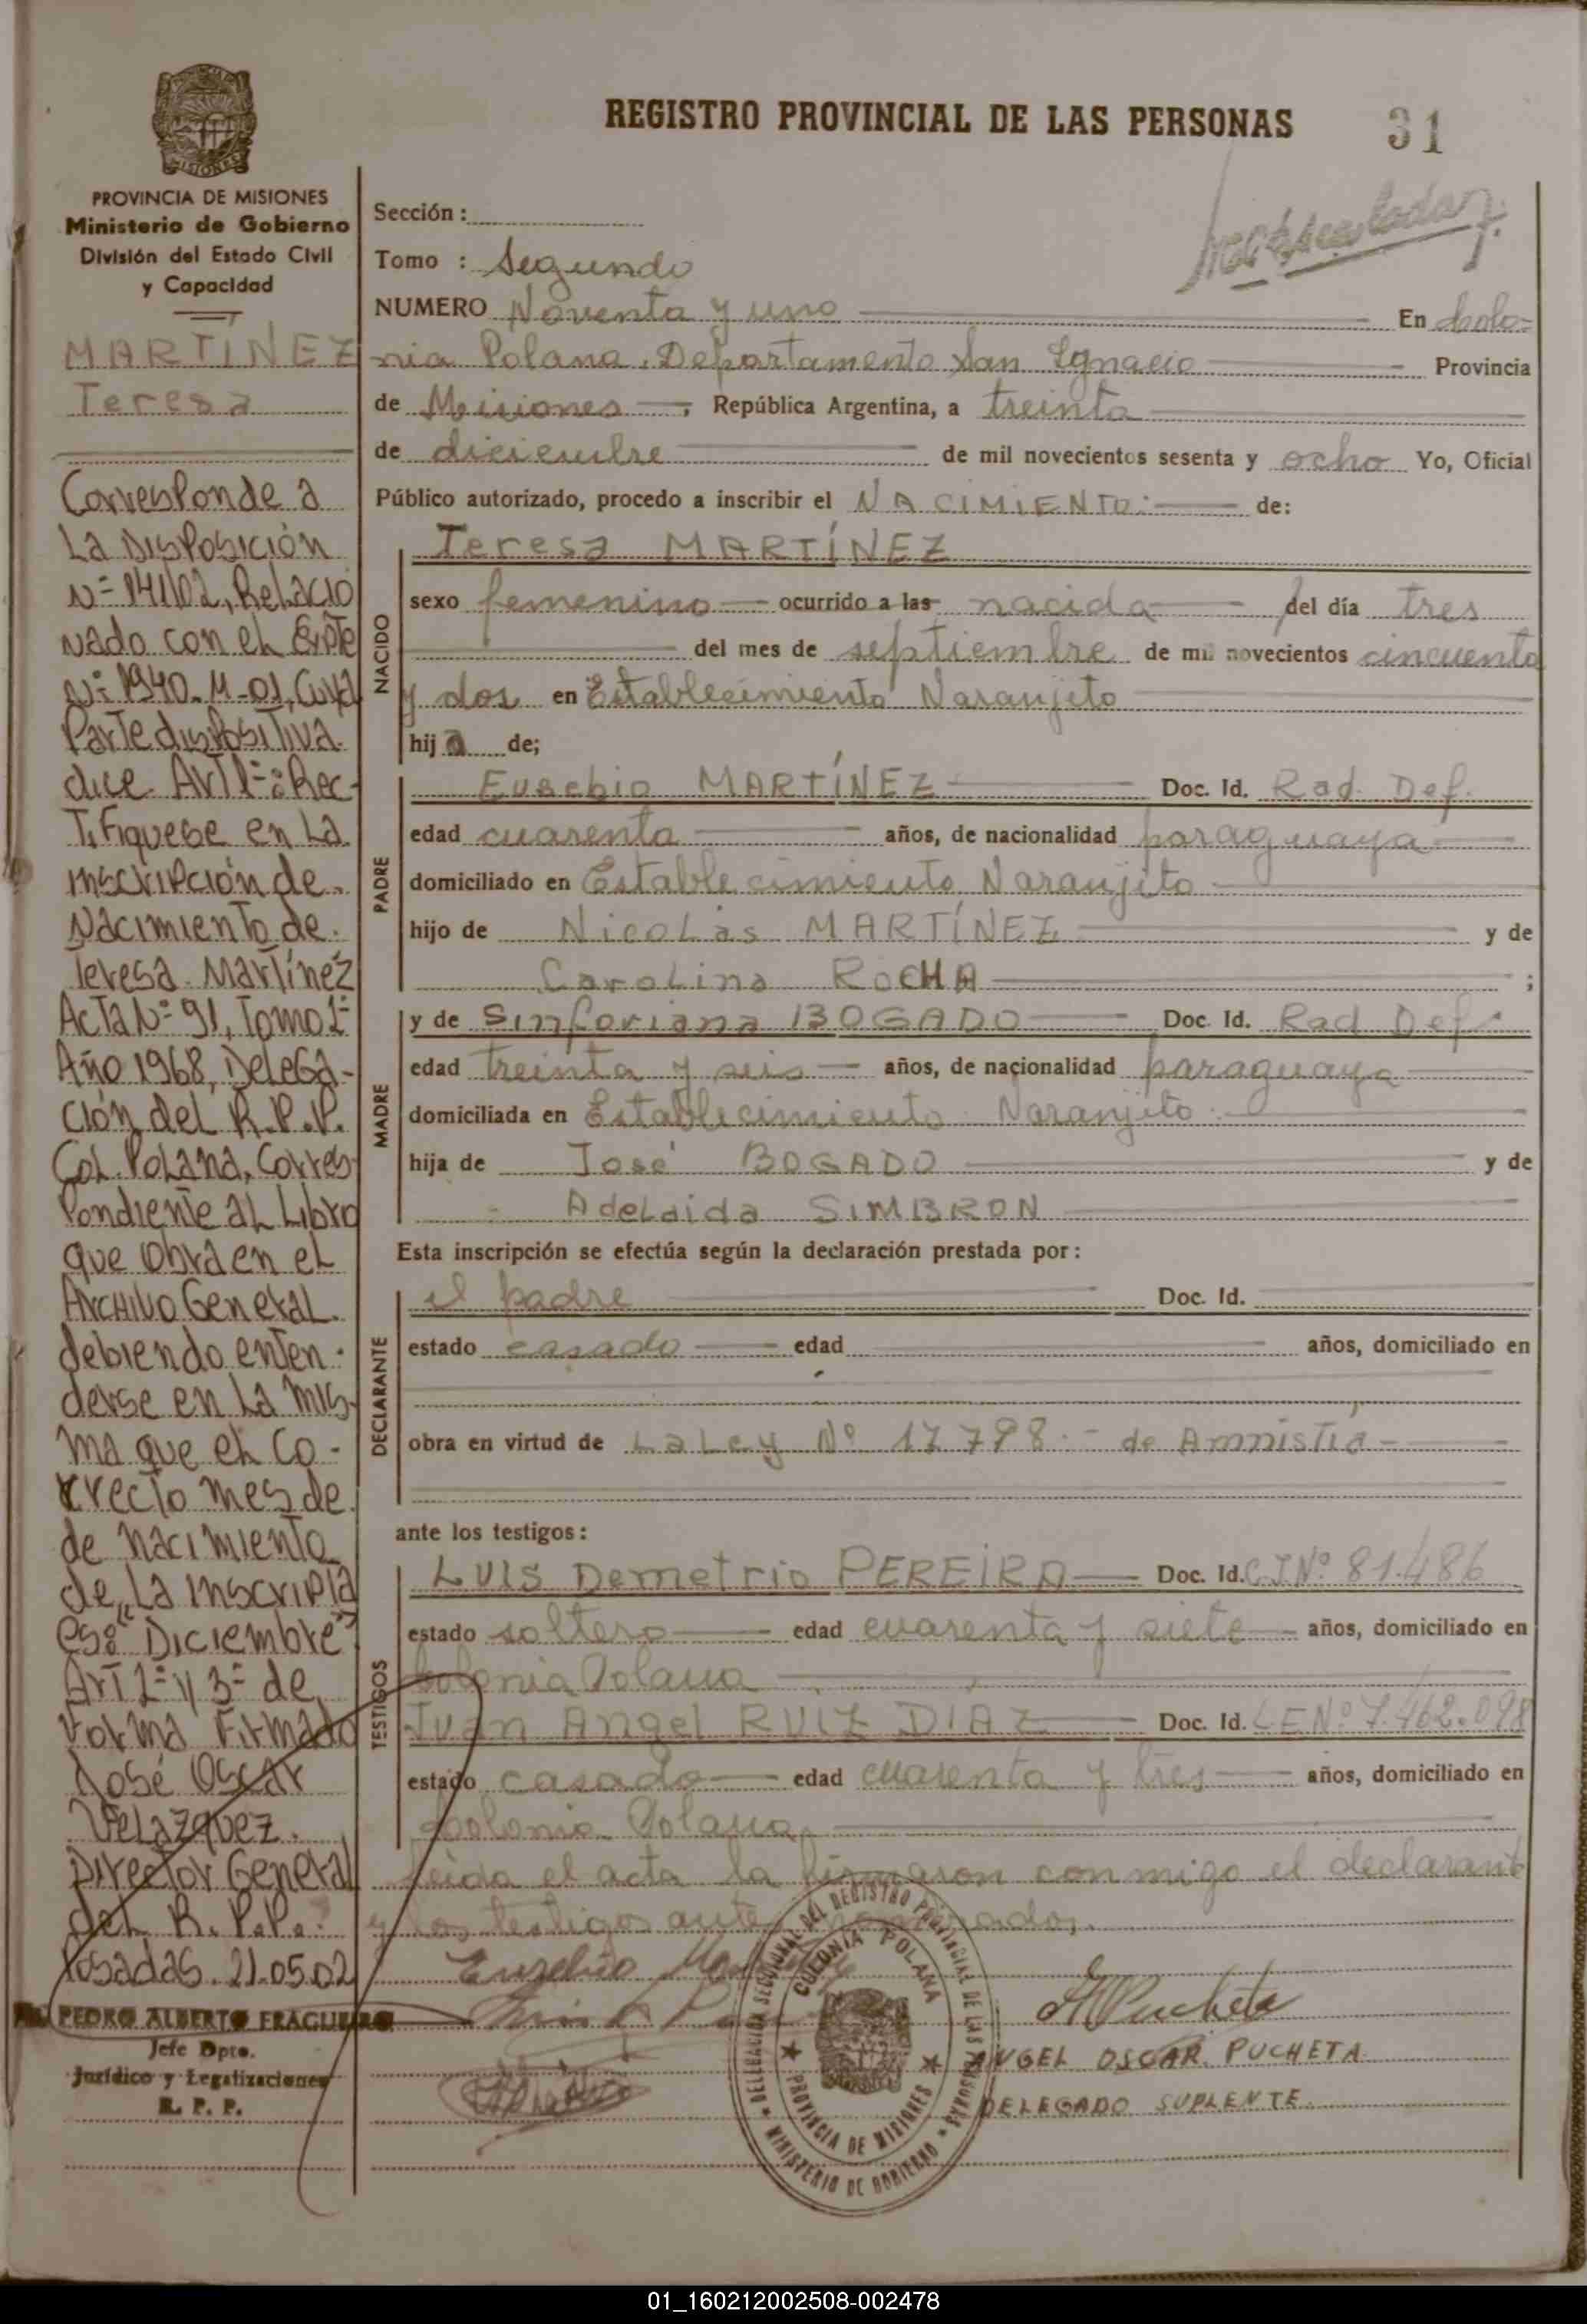 REGISTRO PROVINCIAL DE LAS PERSONAS
31
MISIONES
PROVINCIA DE MISIONES
Ministerio de Gobierno
División del Estado Civil
y Capacidad
MARTINEZ
Teresa
Corresponde a
La Disposición
N= 141/02, Relacio
nado con el Expte
N= 1940-M-01, Cuya
Parte dispositiva
dice Art 1=: Rec-
Tifiquese en La
inscripción de
Nacimiento de
Teresa Martínez
Acta N= 91, Tomo 2=
Año 1968, Delega-
ción del R.P.P.
Col. Polana, Corres-
Pondiente al Libro
que obra en el
Archivo General
debiendo enten-
derse en La mis-
ma que el co-
rrecto mes de
de nacimiento
de La inscripta
es: "Diciembre"
Art 2= y 3= de
Forma Firmado
José Oscar
Velazquez
Director General
del R.P.P.
Posadas 21.05.02
PEDRO ALBERTO FRAGUEIRO
Jefe Dpto.
Jurídico y Legalizaciones
R. P. P.
Sección :
Tomo : Segundo
NUMERO Noventa y uno En Colo-
nia Polana, Departamento San Ignacio Provincia
de Misiones , República Argentina, a treinta
de diciembre de mil novecientos sesenta y ocho Yo, Oficial
Público autorizado, procedo a inscribir el NACIMIENTO: de:
NACIDO
Teresa MARTÍNEZ
sexo femenino ocurrido a las nacida del día tres
del mes de septiembre de mil novecientos cincuenta
y dos en Establecimiento Naranjito
hija de;
PADRE
Eusebio MARTÍNEZ Doc. Id. Rad. Def.
edad cuarenta años, de nacionalidad paraguaya
domiciliado en Establecimiento Naranjito
hijo de Nicolás MARTÍNEZ y de
Carolina ROCHA ;
MADRE
y de Sinforiana BOGADO Doc. Id. Rad Def.
edad treinta y seis años, de nacionalidad paraguaya
domiciliada en Establecimiento Naranjito
hija de José BOGADO y de
Adelaida SIMBRON
Esta inscripción se efectúa según la declaración prestada por:
DECLARANTE
el padre Doc. Id.
estado casado edad años, domiciliado en
obra en virtud de La Ley Nº 17.798.- de Amnistía-
ante los testigos:
TESTIGOS
LUIS Demetrio PEREIRA Doc. Id. C.I Nº 81.486
estado soltero edad cuarenta y siete años, domiciliado en
Colonia Polana
Juan Angel RUIZ DIAZ Doc. Id. L.E Nº 7.462.098
estado casado edad cuarenta y tres años, domiciliado en
Colonia Polana
Leída el acta la firmaron conmigo el declarante
y los testigos
Eusebio
DELEGACION SECCIONAL DEL REGISTRO PROVINCIAL DE LAS PERSONAS
COLONIA POLANA
PROVINCIA DE MISIONES
MINISTERIO DE GOBIERNO
Pucheta
ANGEL OSCAR PUCHETA
DELEGADO SUPLENTE
01_160212002508-002478